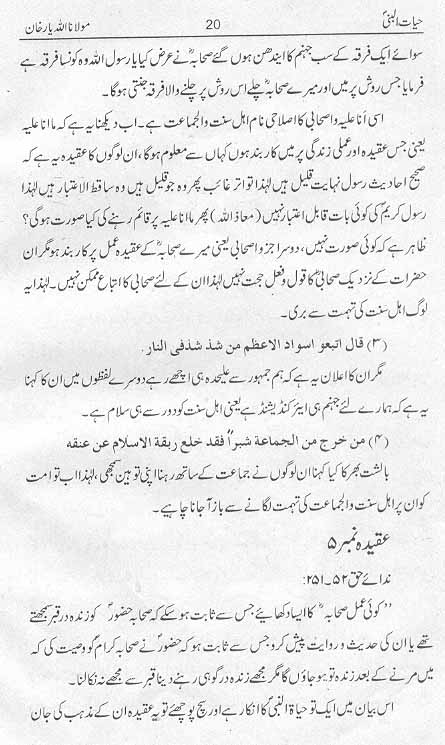 حیات النبیؐ 20 مولانا اللہ یار خان
سوائے ایک فرقہ کے سب جہنم کا ایندھن ہوں گے صحابہؓ نے عرض کیا یا رسول اللہ وہ کونسا فرقہ ہے
فرمایا جس روش پر میں اور میرے صحابہؓ چلے اس روش پر چلنے والا فرقہ جنتی ہوگا۔
اسی أنا علیہ و اصحابی کا اصلاحی نام اہل سنت والجماعت ہے۔ اب دیکھنا یہ ہے کہ ما انا علیہ
یعنی جس عقیدہ اور عملی زندگی پر میں کار بند ہوں کہاں سے معلوم ہوگا، ان لوگوں کا عقیدہ یہ ہے کہ
صحیح احادیث رسول نہایت قلیل ہیں لہٰذا تواتر غائب پھر وہ جو قلیل ہیں وہ ساقط الاعتبار ہیں لہٰذا
رسول کریمؐ کی کوئی بات قابل اعتبار نہیں (معاذ اللہ) پھر ما انا علیہ پر قائم رہنے کی کیا صورت ہوگی؟
ظاہر ہے کہ کوئی صورت نہیں، دوسرا جزو اصحابی یعنی میرے صحابہؓ کے عقیدہ عمل پر کار بند ہو مگر ان
حضرات کے نزدیک صحابیؓ کا قول و فعل حجت نہیں لہٰذا ان کے لئے صحابی کا اتباع ممکن نہیں۔ لہٰذا یہ
لوگ اہل سنت کی تہمت سے بری۔
(۳) قال اتبعو اسواد الاعظم من شذ شذفی النار۔
مگر ان کا اعلان یہ ہے کہ ہم جمہور سے علیحدہ ہی اچھے رہے دوسرے لفظوں میں ان کا کہنا
یہ ہے کہ ہمارے لئے جہنم ہی ایئر کنڈیشنڈ ہے یعنی اہل سنت کو دور سے ہی سلام ہے۔
(۴) من خرج من الجماعة شبراً فقد خلع ربقة الاسلام عن عنقه
بالشت بھر کا کیا کہنا ان لوگوں نے جماعت کے ساتھ رہنا اپنی توہین سمجھی، لہٰذا اب تو امت
کو ان پر اہل سنت والجماعت کی تہمت لگانے سے باز آ جانا چاہیے۔
عقیدہ نمبر ۵
ندائے حق ۵۲۔۲۵۱:
’’کوئی عمل صحابہؓ کا ایسا دکھایئے جس سے ثابت ہو سکے کہ صحابہ حضورؐ کو زندہ در قبر سمجھتے
تھے یا ان کی حدیث و روایت پیش کرو جس سے ثابت ہو کہ حضورؐ نے صحابہ کرام کو وصیت کی کہ
میں مرنے کے بعد زندہ تو ہو جاؤں گا مگر مجھے زندہ درگور ہی رہنے دینا قبر سے مجھے نہ نکالنا۔
اس بیان میں ایک تو حیاۃ النبیؐ کا انکار ہے اور سچ پوچھئے تو یہ عقیدہ ان کے مذہب کی جان